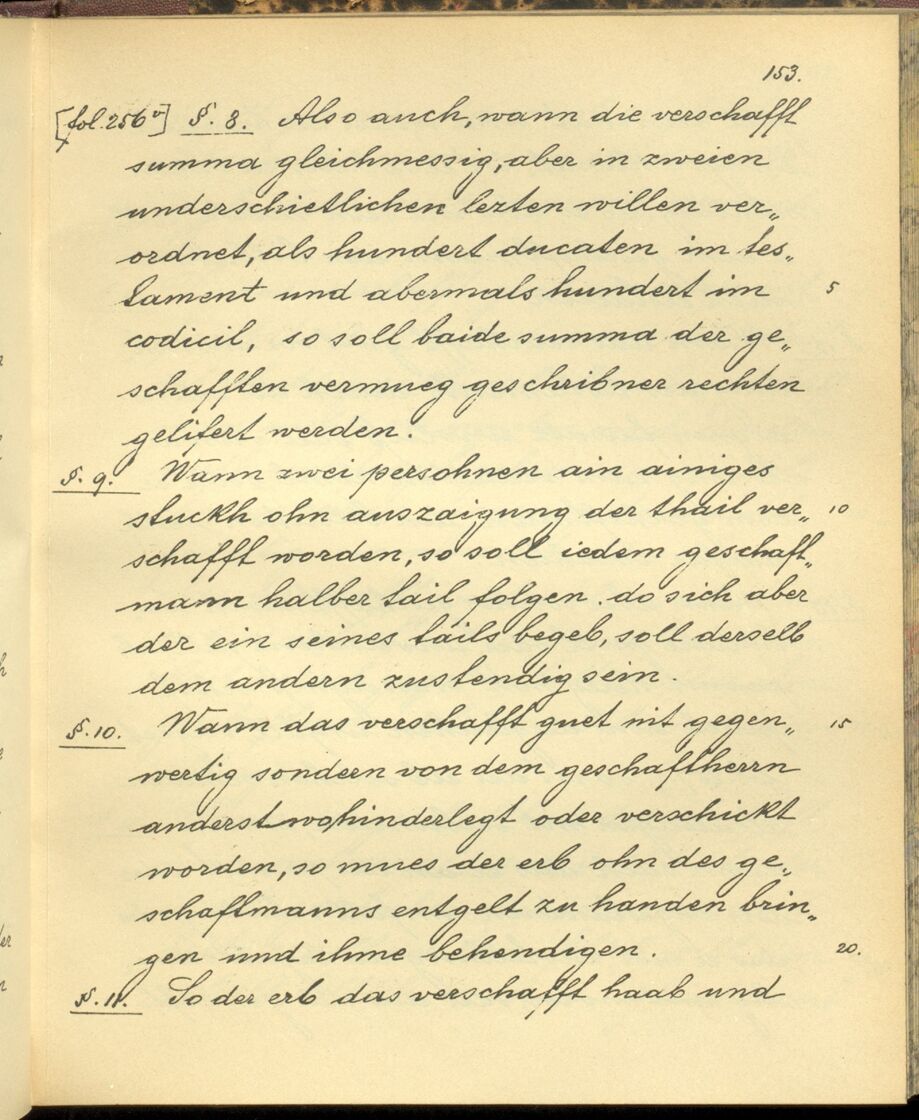 153.
[fol. 256v] §. 8. Also auch, wann die verschafft
summa gleichmessig, aber in zweien
underschietlichen lezten willen ver„
ordnet, als hundert ducaten im tes„
tament und abermals hundert im 5
codicil, so soll baide summa der ge„
schafften vermueg geschribner rechten
gelifert werden.
§. 9. Wann zwei persohnen ain ainiges
stuckh ohn auszaigung der thail ver„ 10
schafft worden, so soll iedem geschaft„
mann halber tail folgen. do sich aber
der ein seines tails begeb, soll derselb
dem andern zustendig sein.
§. 10. Wann das verschafft guet nit gegen„ 15
wertig sondern von dem geschaftherrn
anderstwohinderlegt oder verschickt
worden, so mues der erb ohn des ge„
schaftmanns entgelt zu handen brin„
gen und ihme behendigen. 20.
§. 11. So der erb das verschafft haab und